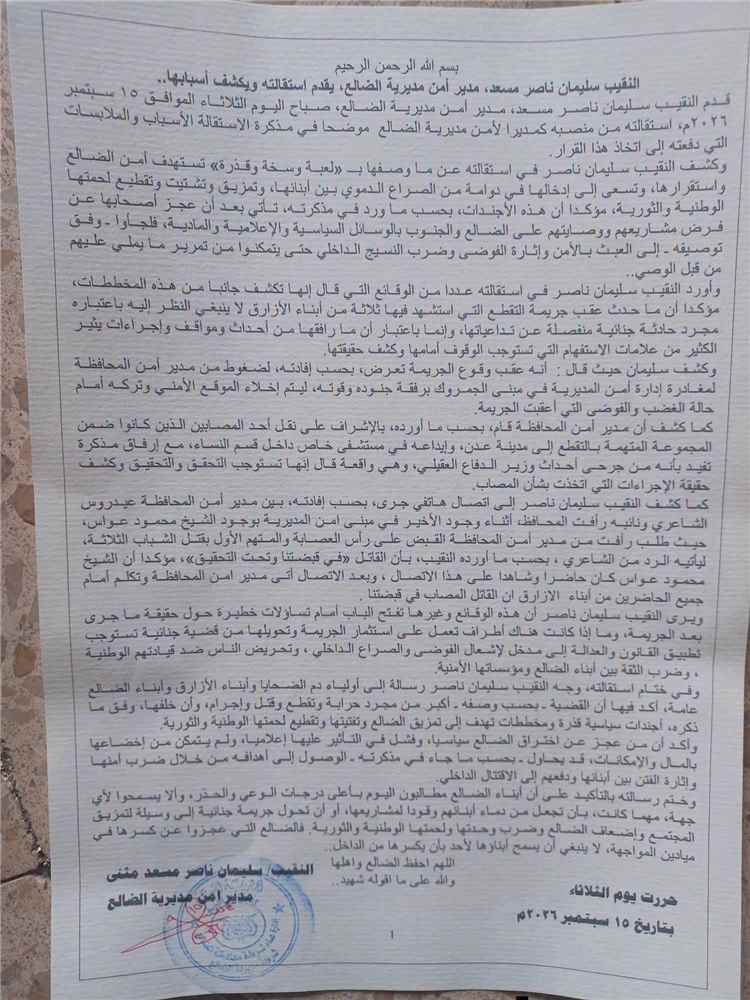 بسم الله الرحمن الرحيم
النقيب سليمان ناصر مسعد، مدير أمن مديرية الضالع، يقدم استقالته ويكشف أسبابها..
قدم النقيب سليمان ناصر مسعد، مدير أمن مديرية الضالع، صباح اليوم الثلاثاء الموافق ١٥ سبتمبر
٢٠٢٦م، استقالته من منصبه كمديرا لأمن مديرية الضالع موضحا في مذكرة الاستقالة الأسباب والملابسات
التي دفعته إلى اتخاذ هذا القرار.
وكشف النقيب سليمان ناصر في استقالته عن ما وصفها بـ «لعبة وسخة وقذرة» تستهدف أمن الضالع
واستقرارها، وتسعى إلى إدخالها في دوامة من الصراع الدموي بين أبنائها، وتمزيق وتشتيت وتقطيع لحمتها
الوطنية والثورية، مؤكدا أن هذه الأجندات، بحسب ما ورد في مذكرته، تأتي بعد أن عجز أصحابها عن
فرض مشاريعهم ووصايتهم على الضالع والجنوب بالوسائل السياسية والإعلامية والمادية، فلجأوا ـ وفق
توصيفه ـ إلى العبث بالأمن وإثارة الفوضى وضرب النسيج الداخلي حتى يتمكنوا من تمرير ما يملي عليهم
من قبل الوصي..
وأورد النقيب سليمان ناصر في استقالته عددا من الوقائع التي قال إنها تكشف جانبا من هذه المخططات،
مؤكدا أن ما حدث عقب جريمة التقطع التي استشهد فيها ثلاثة من أبناء الأزارق لا ينبغي النظر إليه باعتباره
مجرد حادثة جنائية منفصلة عن تداعياتها، وإنما باعتبار أن ما رافقها من أحداث ومواقف وإجراءات يثير
الكثير من علامات الاستفهام التي تستوجب الوقوف أمامها وكشف حقيقتها.
وكشف سليمان حيث قال : أنه عقب وقوع الجريمة تعرض، بحسب إفادته، لضغوط من مدير أمن المحافظة
لمغادرة إدارة أمن المديرية في مبنى الجمروك برفقة جنوده وقوته، ليتم إخلاء الموقع الأمني وتركه أمام
حالة الغضب والفوضى التي أعقبت الجريمة.
كما كشف أن مدير أمن المحافظة قام، بحسب ما أورده، بالإشراف على نقل أحد المصابين الذين كانوا ضمن
المجموعة المتهمة بالتقطع إلى مدينة عدن، وإيداعه في مستشفى خاص داخل قسم النساء، مع إرفاق مذكرة
تفيد بأنه من جرحى أحداث وزير الدفاع العقيلي، وهي واقعة قال إنها تستوجب التحقق والتحقيق وكشف
حقيقة الإجراءات التي اتخذت بشأن المصاب.
كما كشف النقيب سليمان ناصر إلى اتصال هاتفي جرى، بحسب إفادته، بين مدير أمن المحافظة عيدروس
الشاعري ونائبه رأفت المحافظ، أثناء وجود الأخير في مبنى امن المديرية بوجود الشيخ محمود عواس،
حيث طلب رأفت من مدير أمن المحافظة القبض على رأس العصابة والمتهم الأول بقتل الشباب الثلاثة،
ليأتيه الرد من الشاعري ، بحسب ما أورده النقيب، بأن القاتل «في قبضتنا وتحت التحقيق»، مؤكدا أن الشيخ
محمود عواس كان حاضرا وشاهدا على هذا الاتصال ، وبعد الاتصال أتى مدير امن المحافظة وتكلم أمام
جميع الحاضرين من أبناء الازارق ان القاتل المصاب في قبضتنا .
ويرى النقيب سليمان ناصر أن هذه الوقائع وغيرها تفتح الباب أمام تساؤلات خطيرة حول حقيقة ما جرى
بعد الجريمة، وما إذا كانت هناك أطراف تعمل على استثمار الجريمة وتحويلها من قضية جنائية تستوجب
تطبيق القانون والعدالة إلى مدخل لإشعال الفوضى والصراع الداخلي ، وتحريض الناس ضد قيادتهم الوطنية
، وضرب الثقة بين أبناء الضالع ومؤسساتها الأمنية.
وفي ختام استقالته، وجه النقيب سليمان ناصر رسالة إلى أولياء دم الضحايا وأبناء الأزارق وأبناء الضالع
عامة، أكد فيها أن القضية ـ بحسب وصفه ـ أكبر من مجرد حرابة وتقطع وقتل وإجرام، وأن خلفها، وفق ما
ذكره، أجندات سياسية قذرة ومخططات تهدف إلى تمزيق الضالع وتفتيتها وتقطيع لحمتها الوطنية والثورية.
وأكد أن من عجز عن اختراق الضالع سياسيا، وفشل في التأثير عليها إعلاميا، ولم يتمكن من إخضاعها
بالمال والإمكانات، قد يحاول ـ بحسب ما جاء في مذكرته ـ الوصول إلى أهدافه من خلال ضرب أمنها
وإثارة الفتن بين أبنائها ودفعهم إلى الاقتتال الداخلي.
وختم رسالته بالتأكيد على أن أبناء الضالع مطالبون اليوم بأعلى درجات الوعي والحذر، وألا يسمحوا لأي
جهة، مهما كانت، بأن تجعل من دماء أبنائهم وقودا لمشاريعها، أو أن تحول جريمة جنائية إلى وسيلة لتمزيق
المجتمع وإضعاف الضالع وضرب وحدتها ولحمتها الوطنية والثورية. فالضالع التي عجزوا عن كسرها في
ميادين المواجهة، لا ينبغي أن يسمح أبناؤها لأحد بأن يكسرها من الداخل..
اللهم احفظ الضالع واهلها
والله على ما اقوله شهيد..
النقيب/ سليمان ناصر مسعد مثنى
مدير امن مديرية الضالع
حررت يوم الثلاثاء
بتاريخ ١٥ سبتمبر ٢٠٢٦م
١